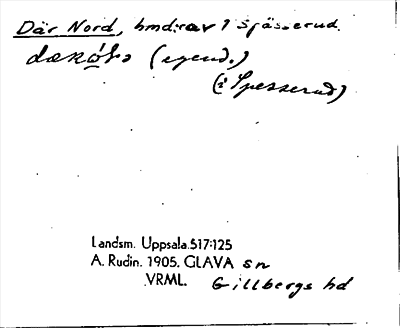 Där Nord, hmd:av 1 Spässerud.
(egend.)
(i Spesserud)
Landsm. Uppsala.517:125
A. Rudin. 1905. GLAVA sn
VRML. Gillbergs hd